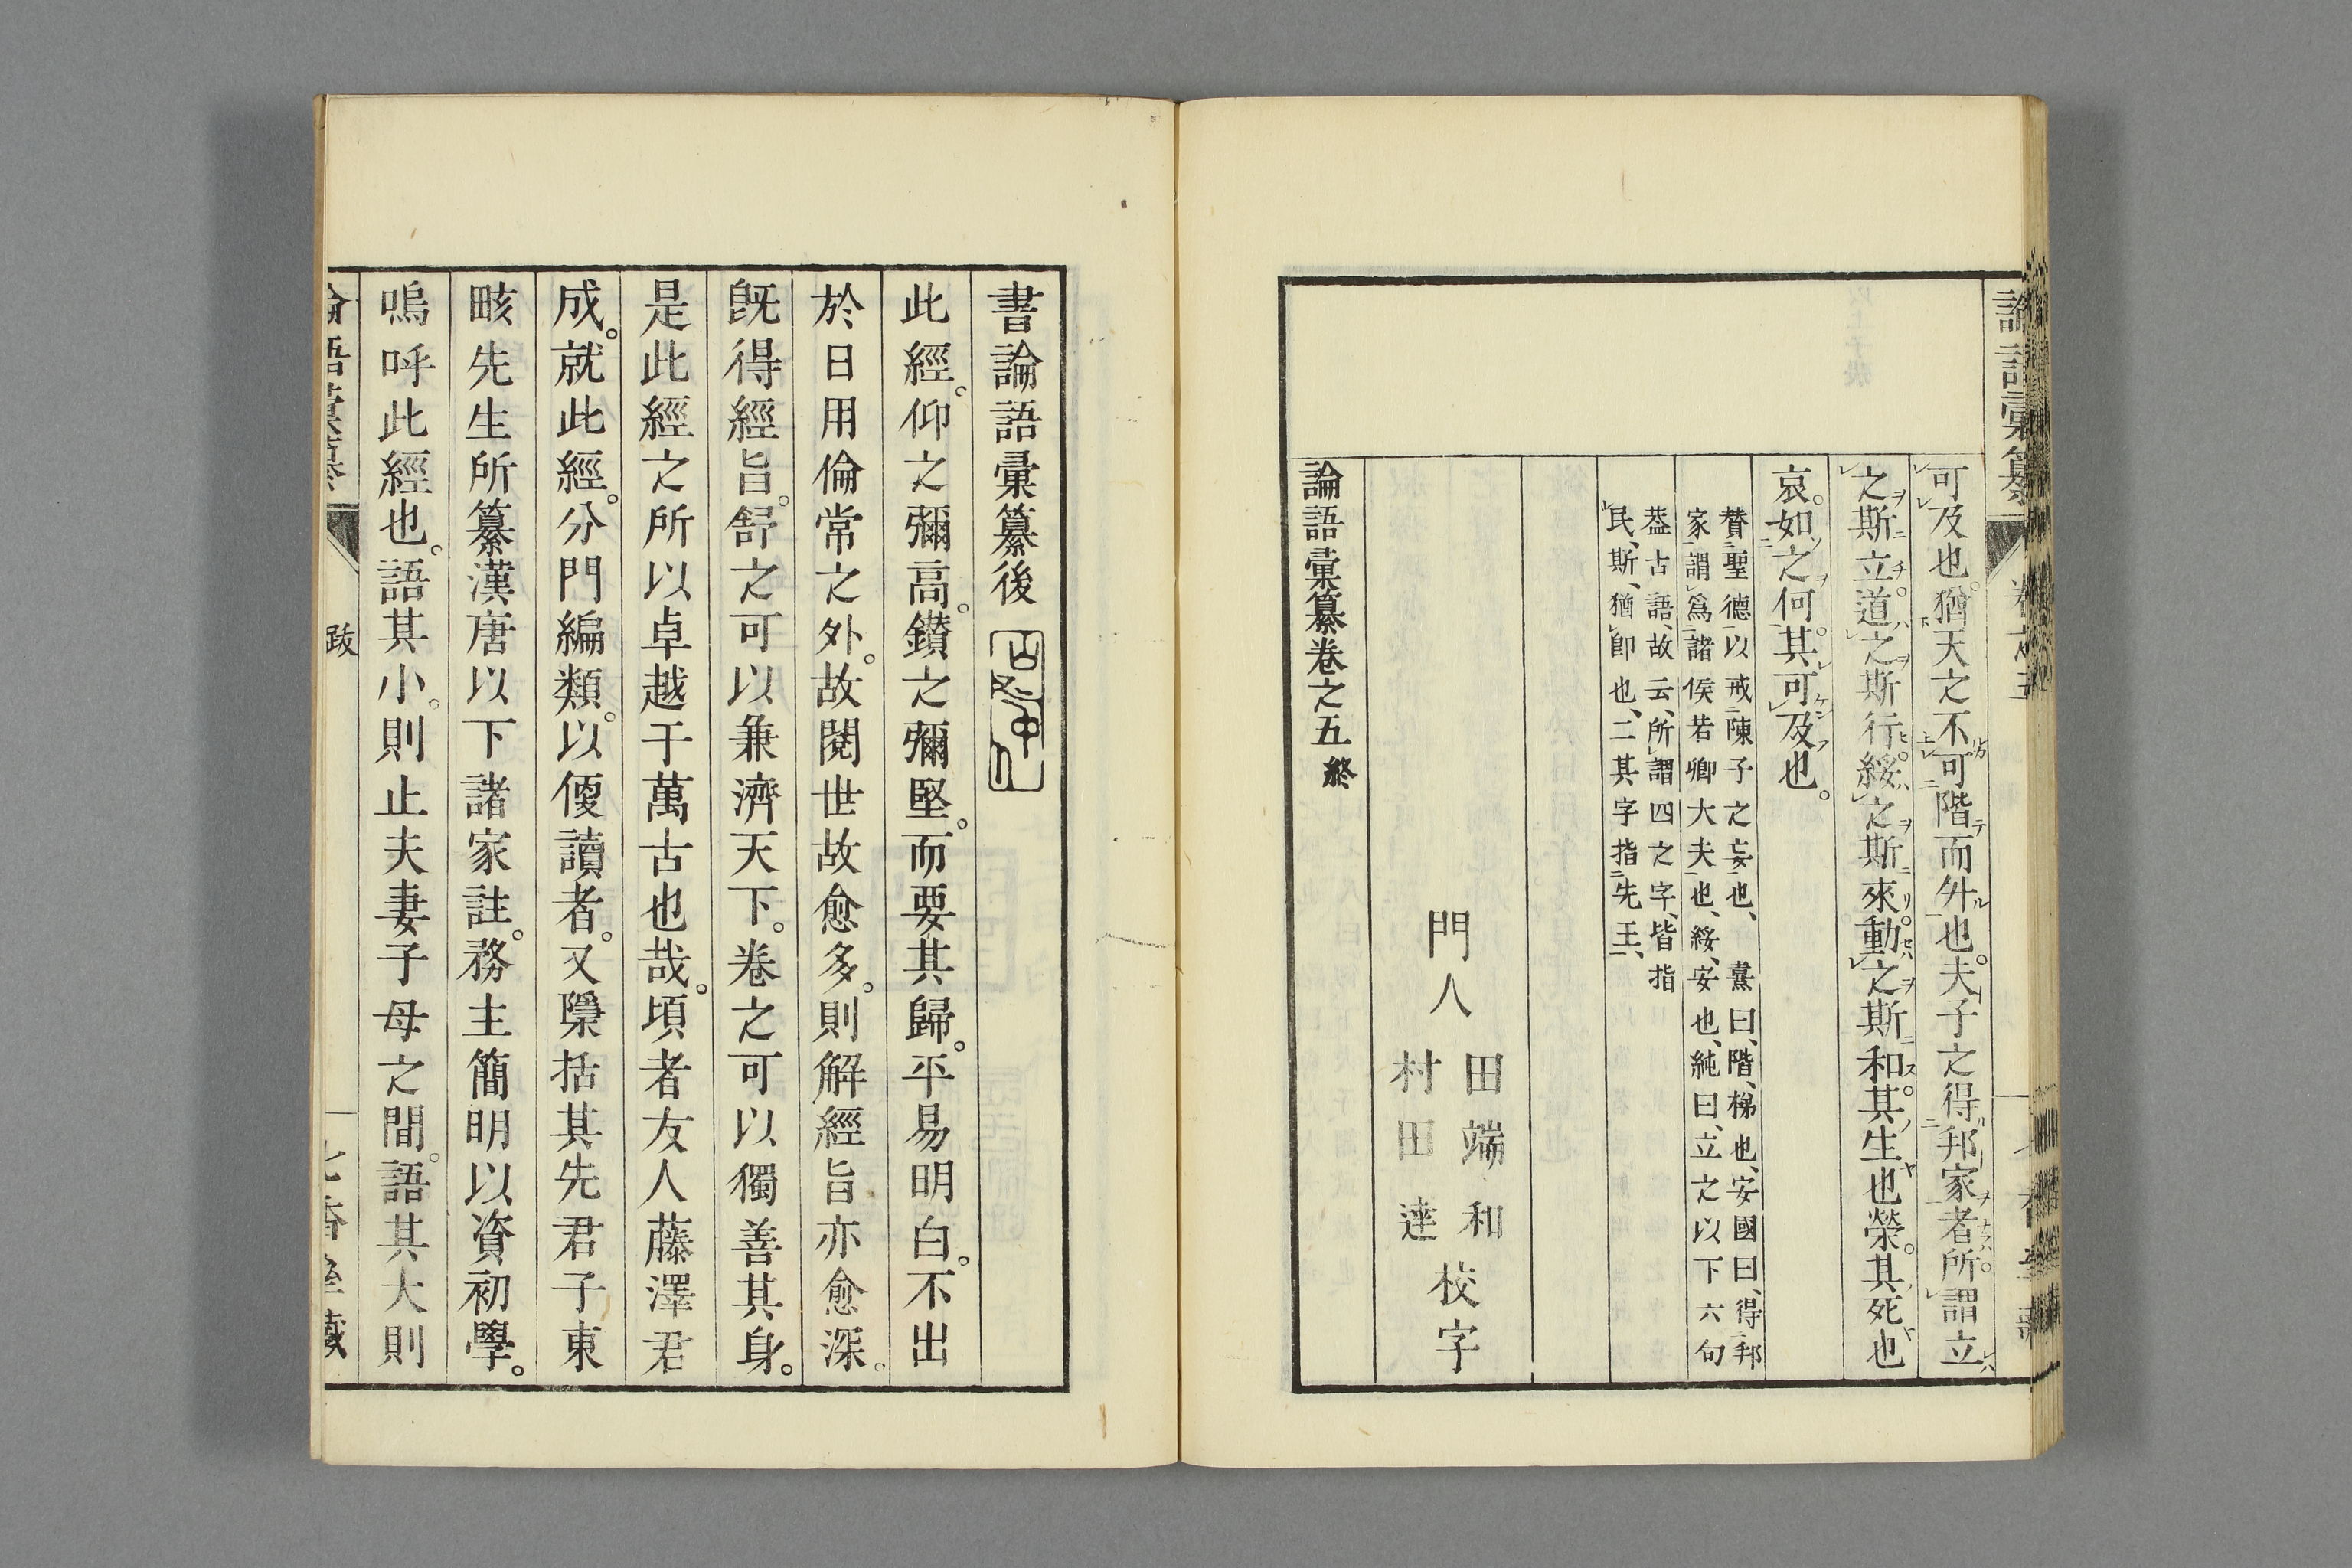 可及也。猶天之不可階而升也。夫子之得邦家者。所謂立
之斯立。道之斯行。綏之斯來。動之斯和。其生也榮。其死也
哀。如之何。其可及也。
賛聖德以戒陳子之妄也、 熹曰、階、梯也、安國曰、得邦
家、謂爲諸侯若卿大夫也、綏、安也、純曰、立之以下六句
葢古語、故云、所謂四之字、皆指
民、斯、猶卽也、二其字指先王、
門人
田端和
村田達
校字
論語彙纂卷之五終
書論語彙纂後
此經。仰之彌高。鑽之彌堅。而要其歸。平易明白。不出
於日用倫常之外。故閱世故愈多。則解經旨亦愈深。
旣得經旨。舒之可以兼濟天下。卷之可以獨善其身。
是此經之所以卓越于萬古也哉。頃者友人藤澤君
成。就此經。分門編類。以便讀者。又檃括其先君子東
畡先生所纂漢唐以下諸家註。務主簡明以資初學。
嗚呼此經也。語其小。則止夫妻子母之間。語其大則
跋